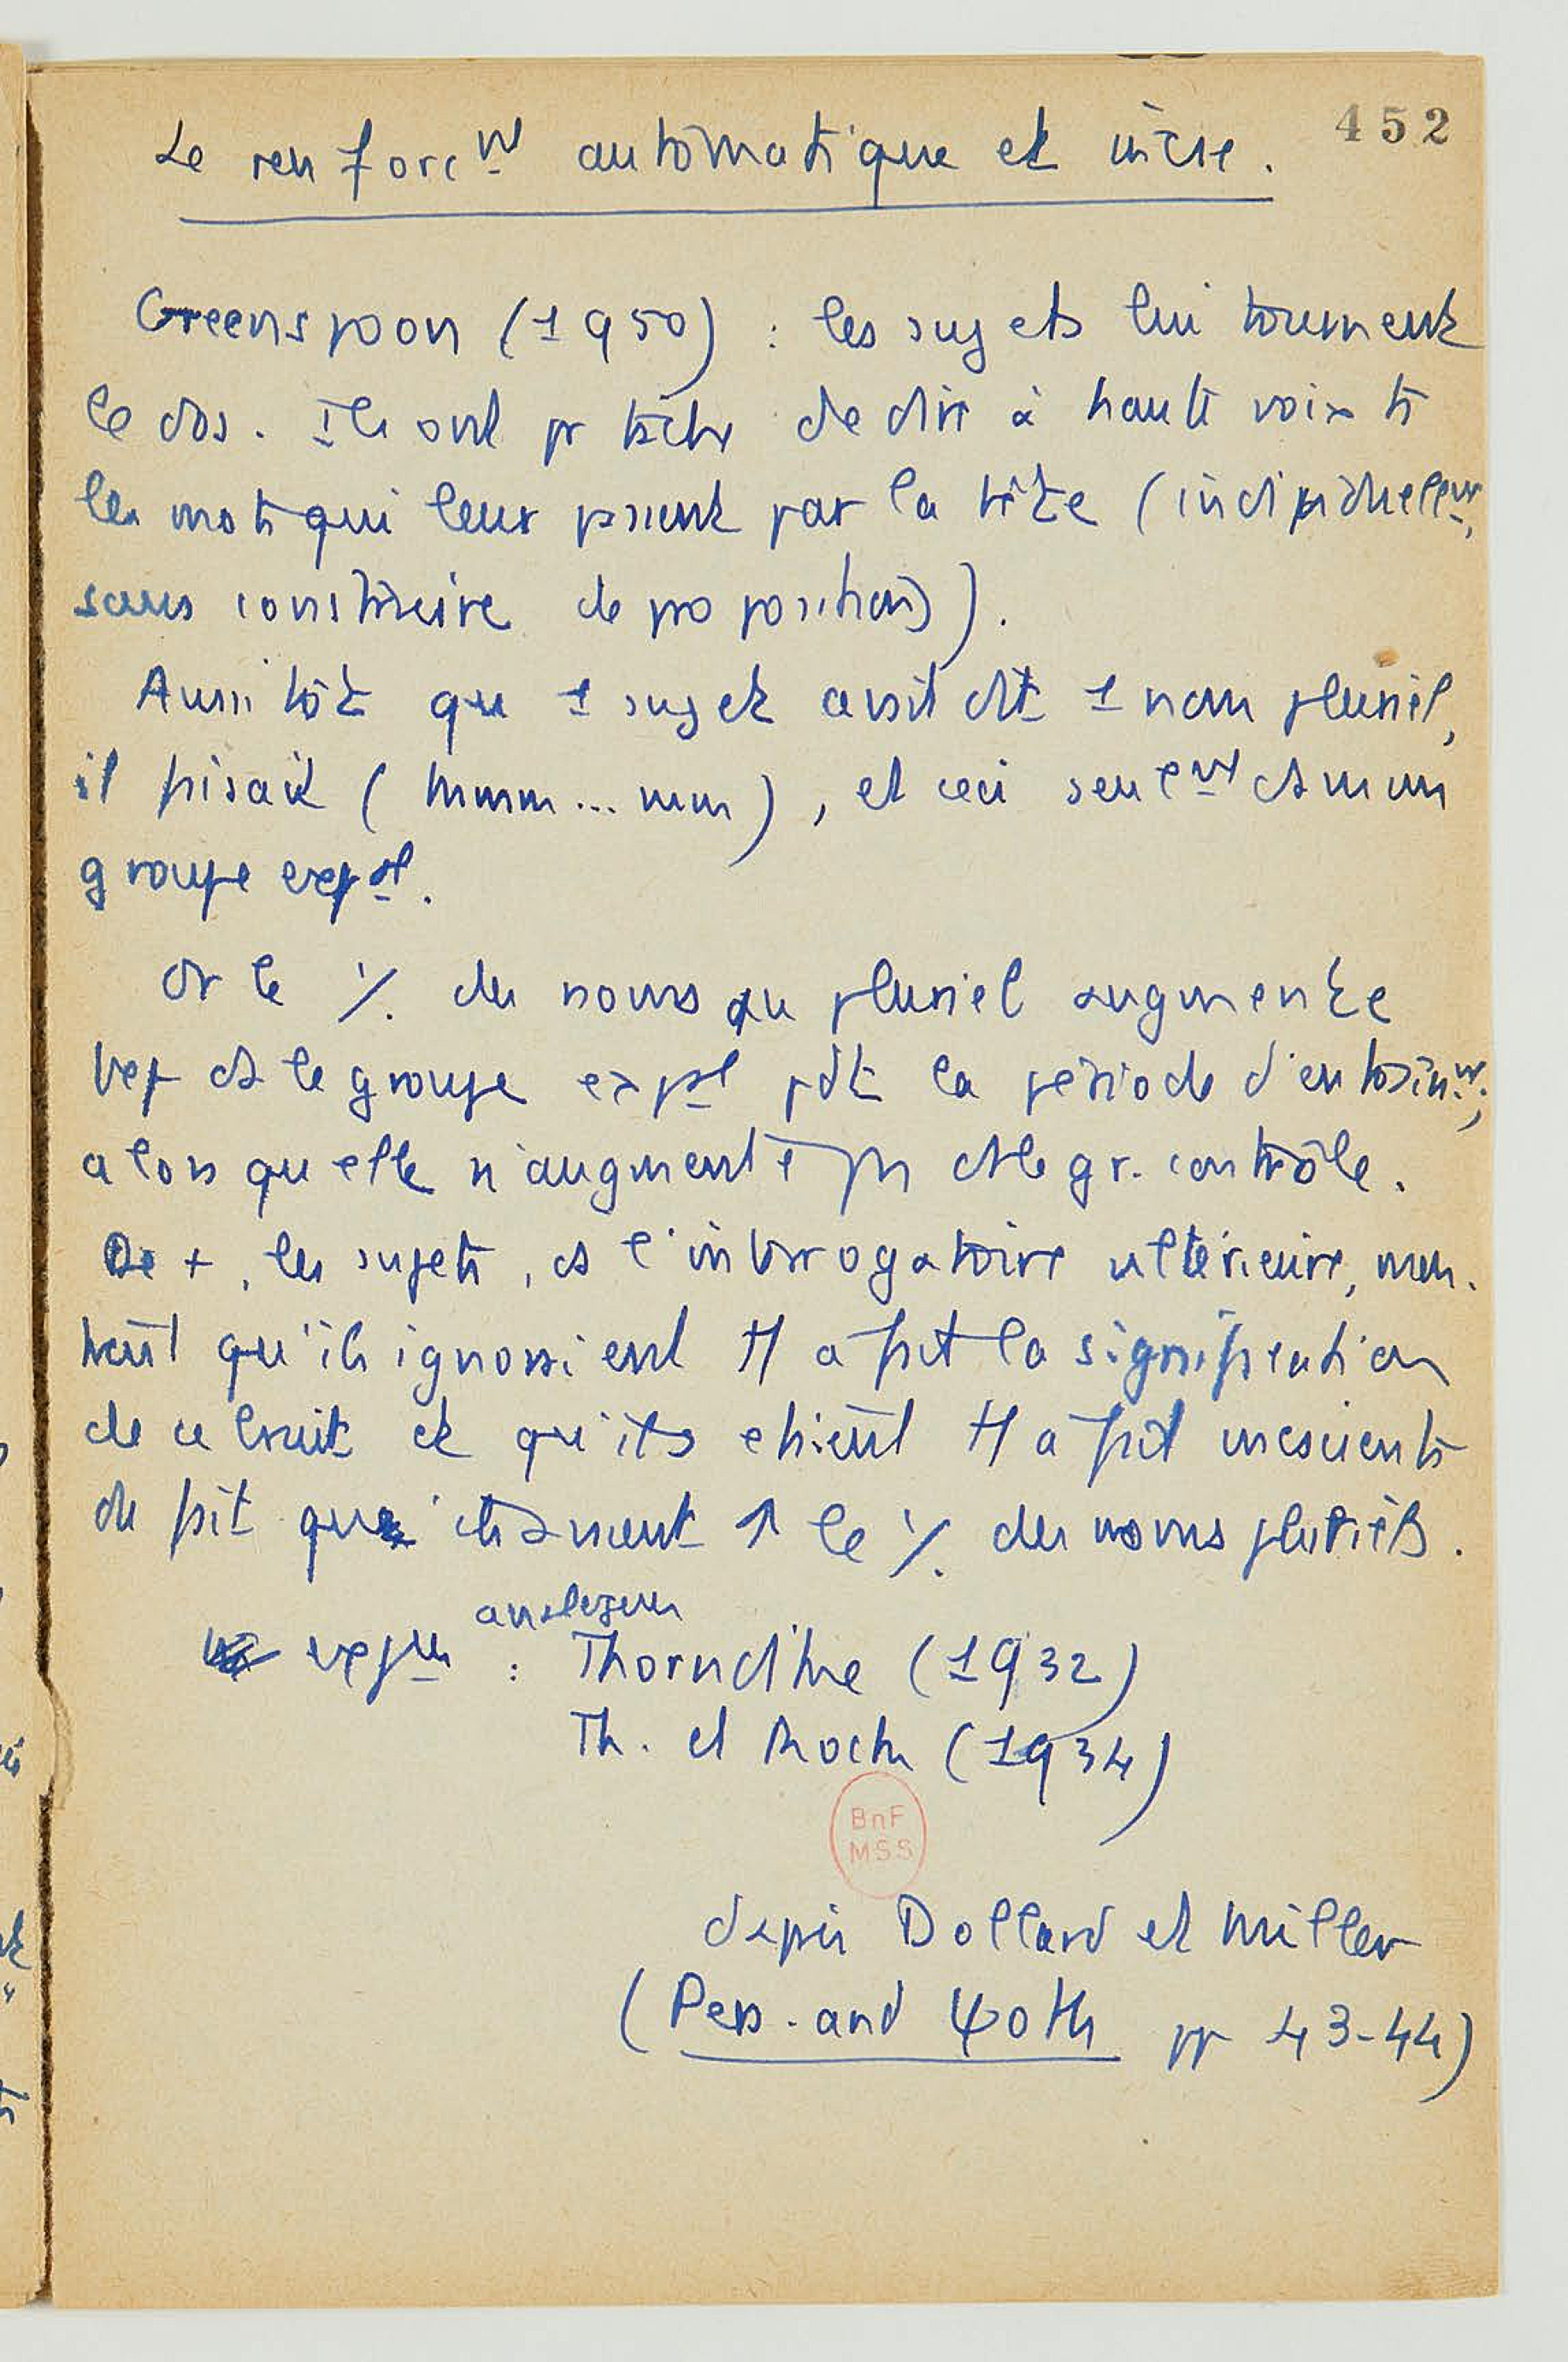 452
Le renforcnt automatique et incst.
Greenspoon (1950) : les sujets lui tournent
le dos. Ils ont pr tâche de dire à haute voix ts
les mots qui leur passent par la tête (individuellemt,
sans construire de propositions).
Aussitôt que 1 sujet avait dit 1 nom pluriel,
il faisait (hmmm...mm), et ceci seulemt ds un
groupe exptal.
Or le % des noms au pluriel augmente
bcp ds le groupe exptal pdt la période d'entrainmt;
alors qu'elle n'augmente pas ds le gr. contrôle.
De +, les sujets, ds l'interrogatoire ultérieure, mon-
trent qu'ils ignoraient tt à fait la signification
de ce bruit et qu'ils étaient tt à fait inconscients
du fait qu'ils avaient ↑ le % des noms pluriels.
analogues
expces : Thorndike (1932)
Th. et Rock (1934)
BnF
MSS
d'après Dollard et Miller
(Pers. and ψoth pp 43-44)